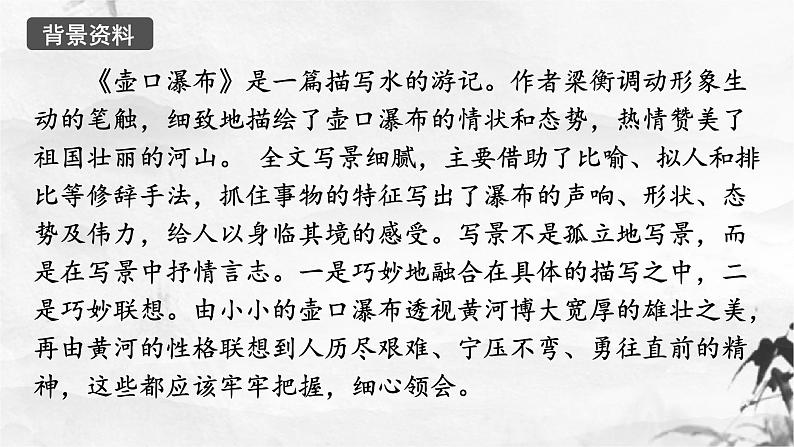 背景资料
《壶口瀑布》是一篇描写水的游记。作者梁衡调动形象生
动的笔触，细致地描绘了壶口瀑布的情状和态势，热情赞美了
祖国壮丽的河山。 全文写景细腻，主要借助了比喻、拟人和排
比等修辞手法，抓住事物的特征写出了瀑布的声响、形状、态
势及伟力，给人以身临其境的感受。写景不是孤立地写景，而
是在写景中抒情言志。一是巧妙地融合在具体的描写之中，二
是巧妙联想。由小小的壶口瀑布透视黄河博大宽厚的雄壮之美，
再由黄河的性格联想到人历尽艰难、宁压不弯、勇往直前的精
神，这些都应该牢牢把握，细心领会。